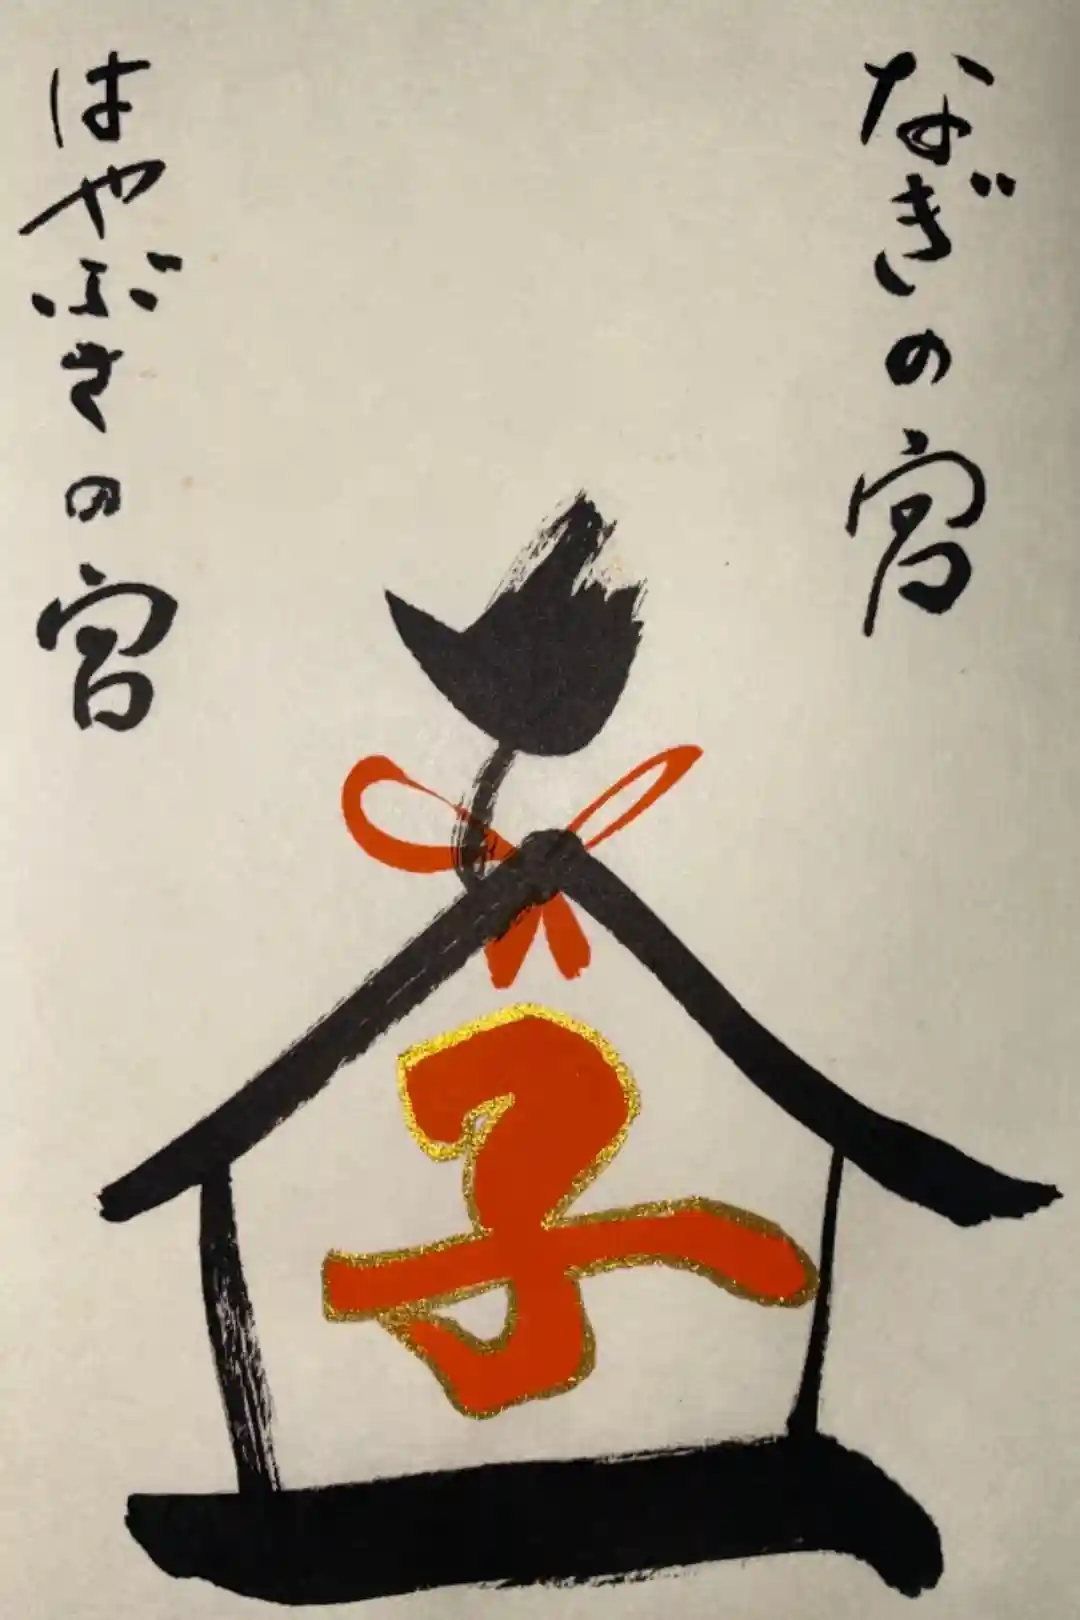 なぎの宮
子
はやぶさの宮